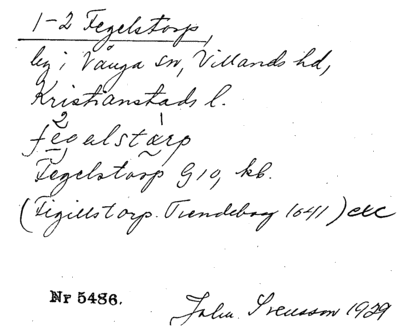 1-2 Fegelstorp,
by i Vånga sn, Villands hd,
Kristianstads l.
fegalstarp
Fegelstorp G10, kb.
(Figillstorp. Tiendebog 1641) etc
Nr 5486.
John Svensson 1929